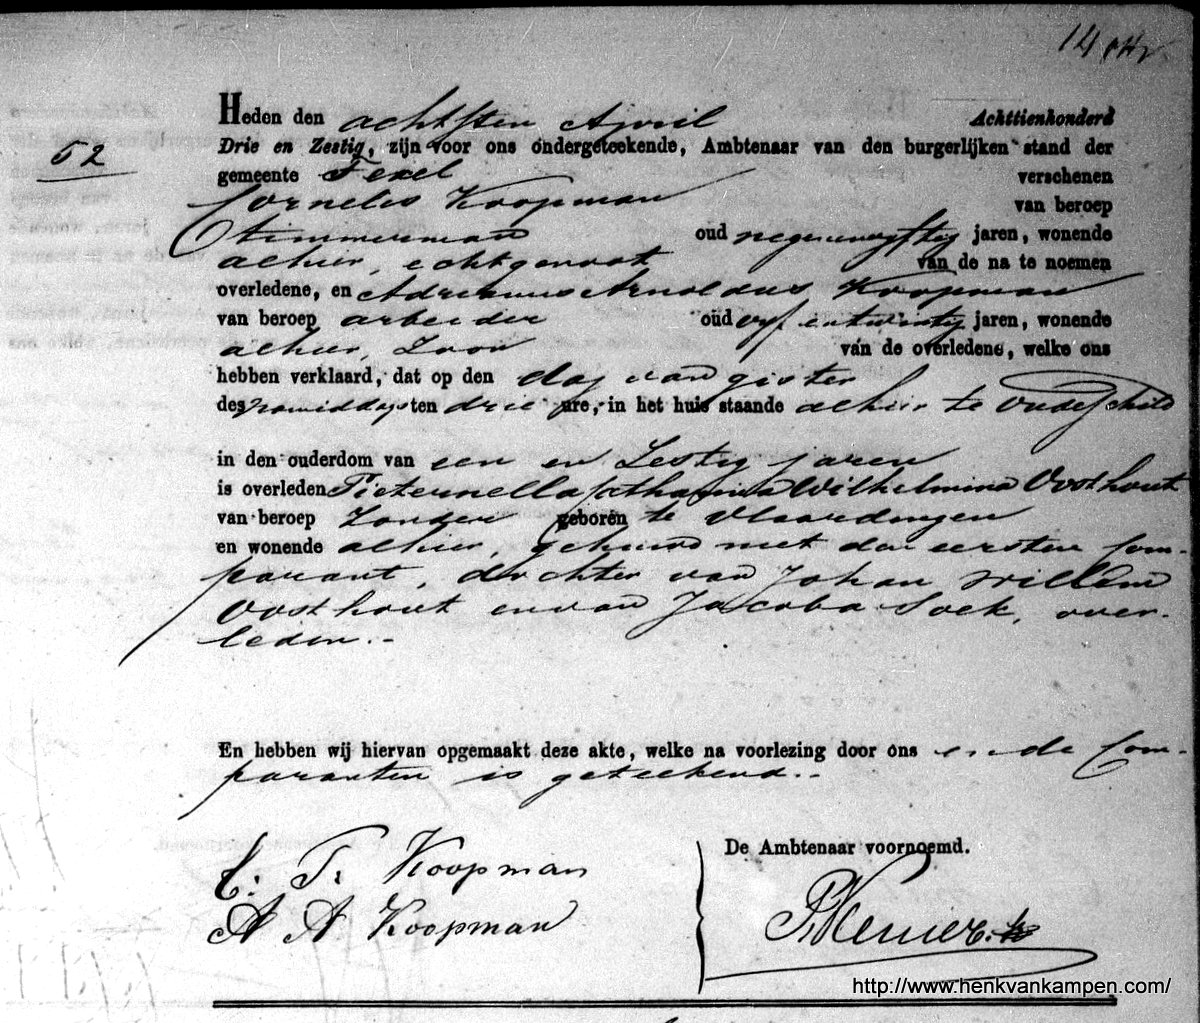 14
Heden den achtsten April Achttienhonderd
52
Drie en Zestig, zijn voor ons ondergeteekende, Ambtenaar van den burgerlijken stand der
gemeente Texel verschenen
Cornelis Koopman van beroep
timmerman oud negenenvyftig jaren, wonende
alhier, echtgenoot van de na te noemen
overledene, en Adrianus Arnoldus Koopman
van beroep arbeider oud vyf en twintig jaren, wonende
alhier, Zoon van de overledene, welke ons
hebben verklaard, dat op den dag van gister
des namiddags ten drie ure, in het huis staande alhier te Oudeschild
in den ouderdom van een en Zestig jaren
is overleden Pieternella Catharina Wilhelmina Oosthout
van beroep Zonder geboren te Vlaardingen
en wonende alhier, gehuwd met den eersten Com-
parant, dochter van Johan Willem
Oosthout en van Jacoba Soek, over-
leden.-
En hebben wij hiervan opgemaakt deze akte, welke na voorlezing door ons en de Com-
paranten is geteekend.-
C. T. Koopman
De Ambtenaar voornoemd.
A A Koopman
http://www.henkvankampen.com/